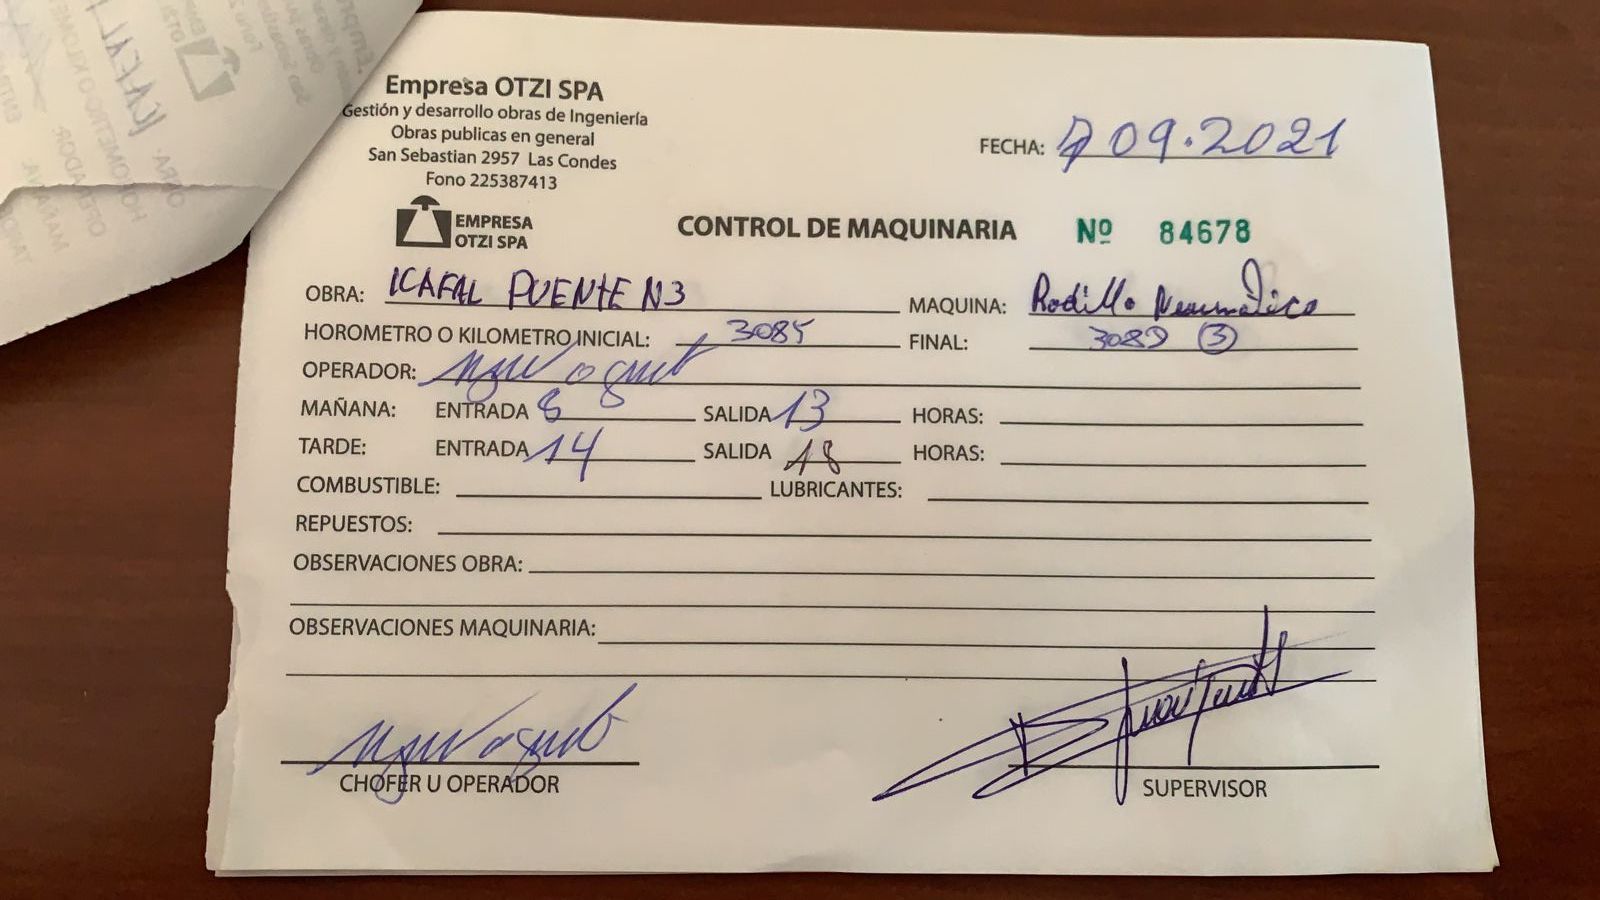 Empresa OTZI SPA
Gestión y desarrollo obras de Ingeniería
Obras publicas en general
San Sebastian 2957 Las Condes
Fono 225387413
EMPRESA
OTZI SPA
FECHA: 7 09.2021
CONTROL DE MAQUINARIA Nº 84678
OBRA: ICAFAL PUENTE N3 MAQUINA: Rodillo Neumático
HOROMETRO O KILOMETRO INICIAL: 3085 FINAL: 3089 (3)
OPERADOR:
MAÑANA: ENTRADA 8 SALIDA 13 HORAS:
TARDE: ENTRADA 14 SALIDA 18 HORAS:
COMBUSTIBLE: LUBRICANTES:
REPUESTOS:
OBSERVACIONES OBRA:
OBSERVACIONES MAQUINARIA:
CHOFER U OPERADOR
SUPERVISOR